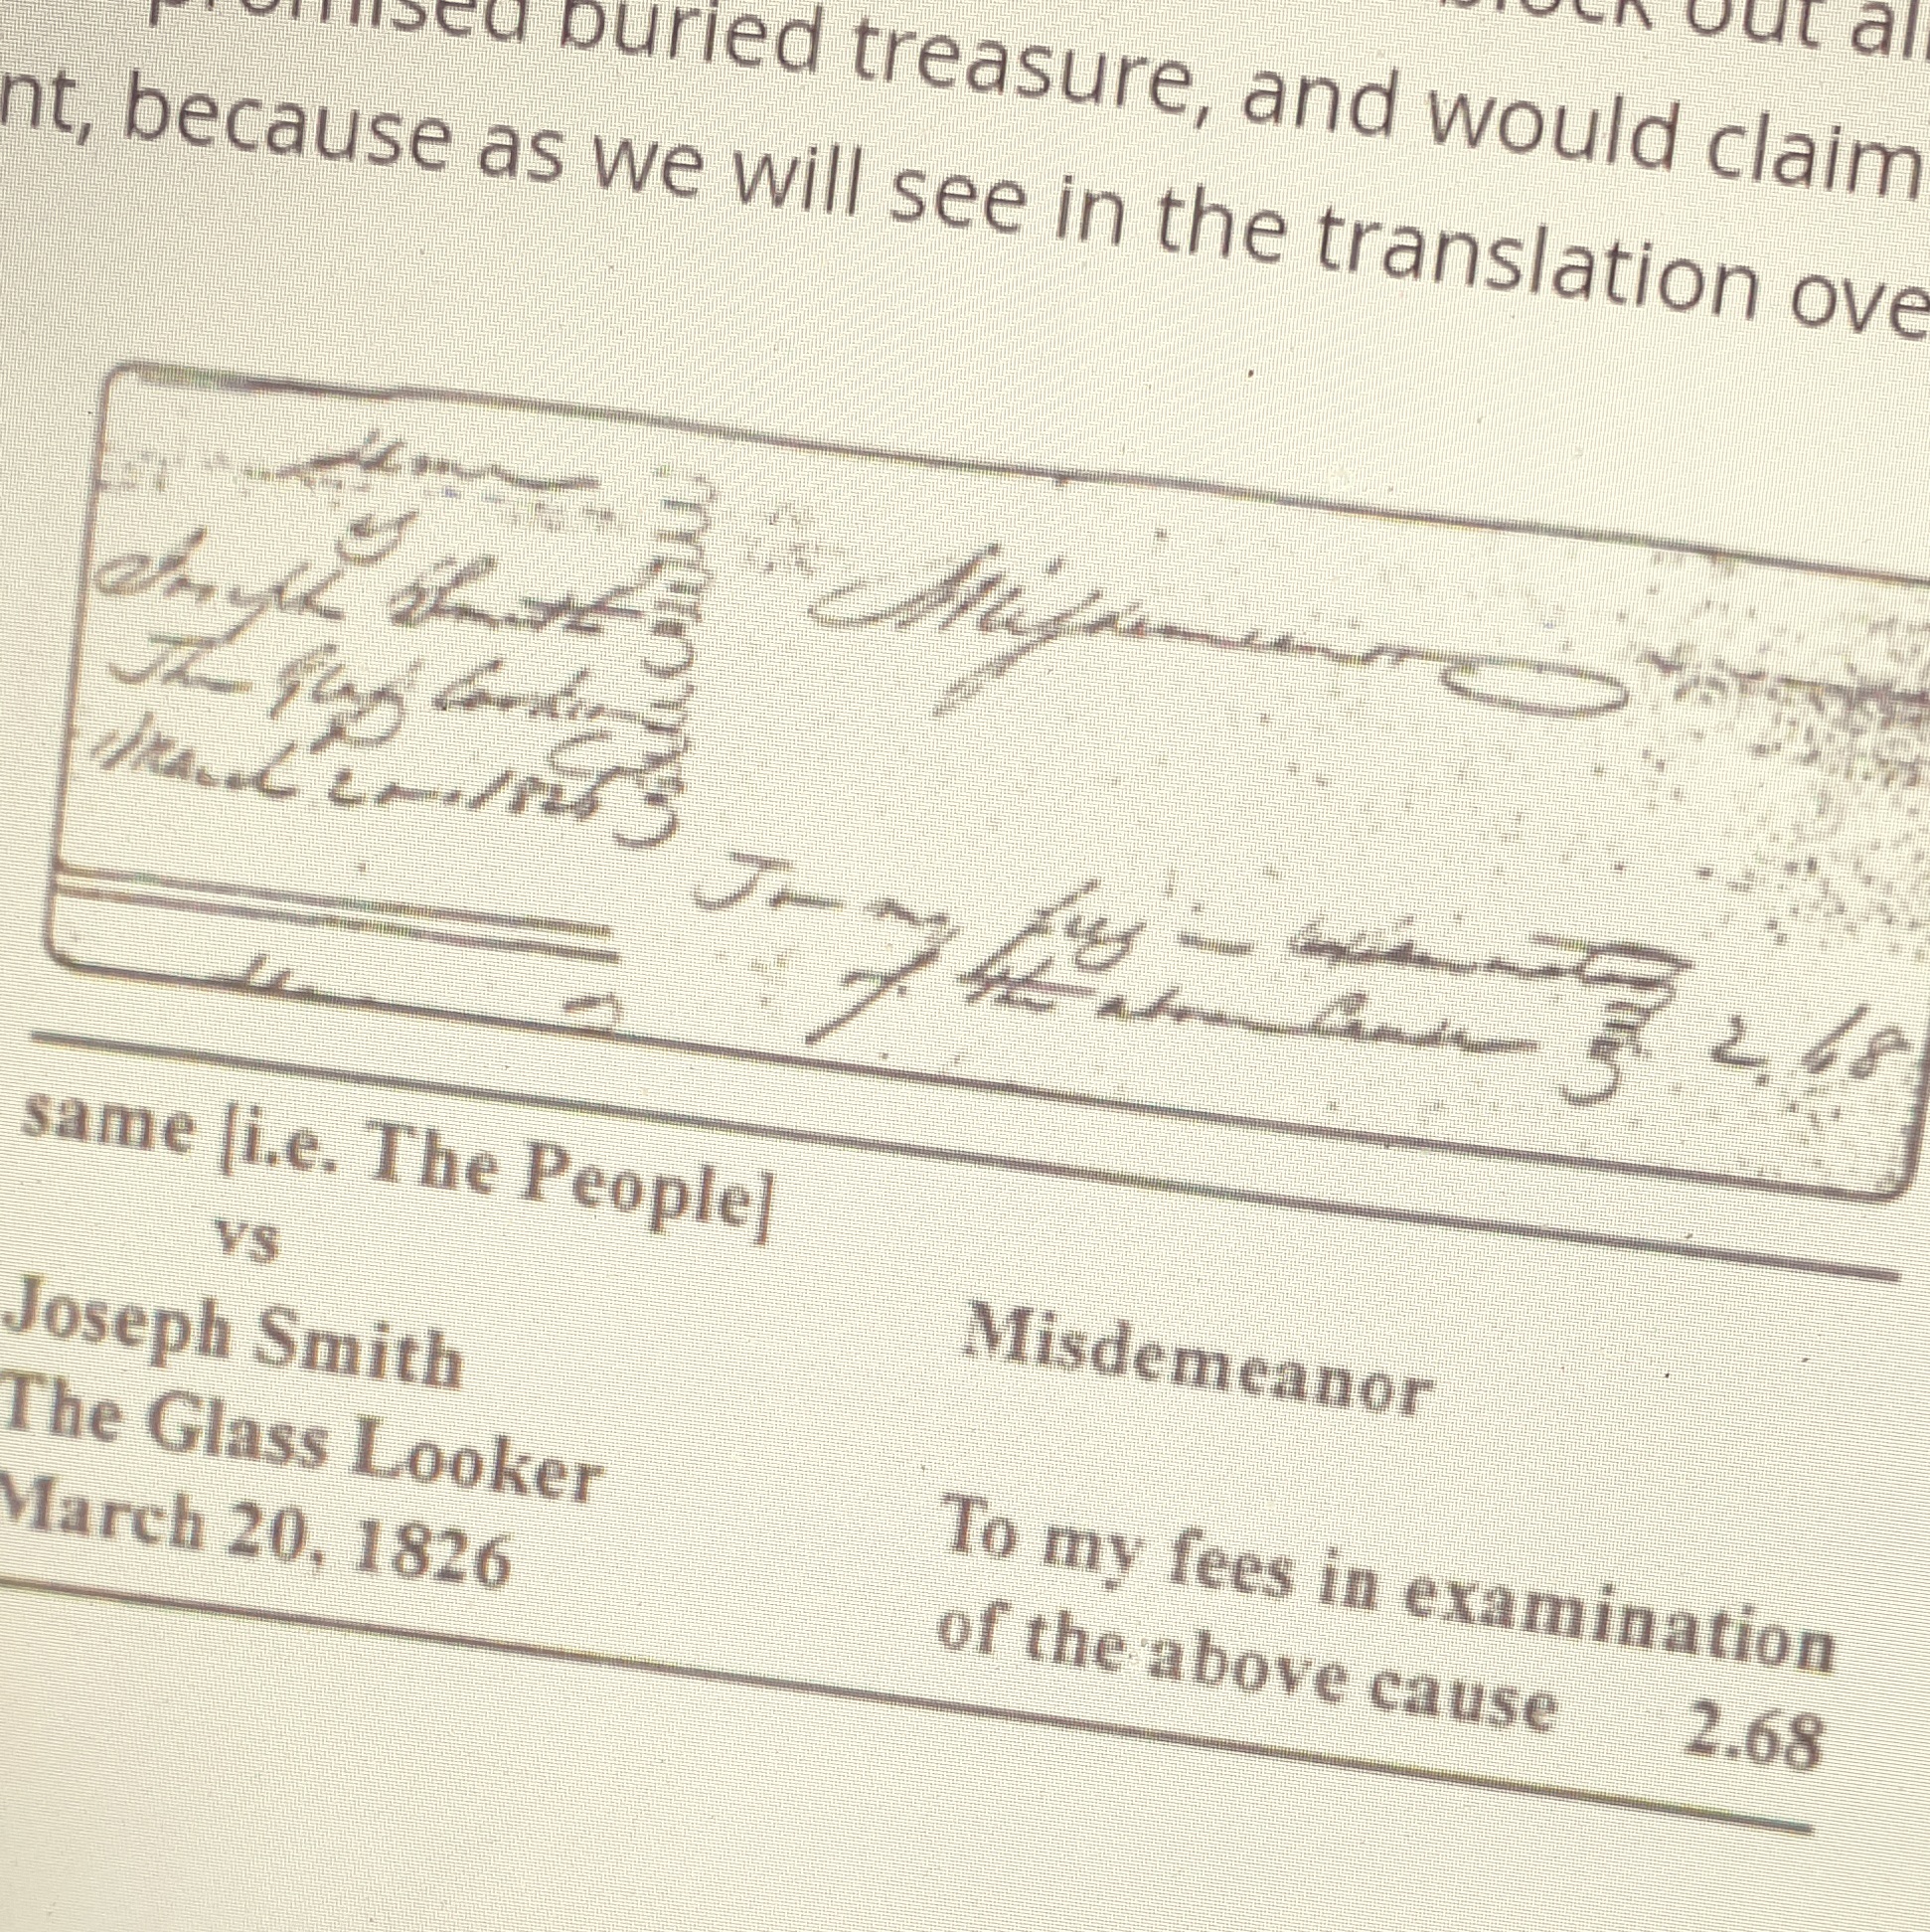 promised buried treasure, and would claim
because as we will see in the translation
same
vs
Joseph Smith
The Glass Looker
March 20, 1826
Misdemeanor
To my fees in examination
of the above cause 2.68
same [i.e. The People]
vs
Joseph Smith
The Glass Looker
March 20, 1826
Misdemeanor
To my fees in examination
of the above cause 2.68